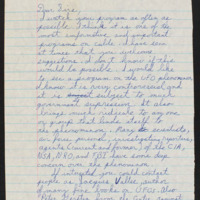 Dear Sirs,
I watch your program as often as
possible. I think it is one of the
most informative and important
programs on cable. I have seen
at times that you welcome
suggestions. I don't know if this
would be possible. I would like
to see a program on the UFO phenomenon.
I know it is very confrontational and
it is subject to
government suppression. It also
brings much ridicule to any one
or group that lends itself to
the phenomenon. Many scientists,
air force personnel, investigative
agents (current and former) of the CIA,
NSA, NRO, and FBI have some
on the phenomenon.
If interested you could contact
people as Jacques Vallee author
of many fine books on UFOs. Also